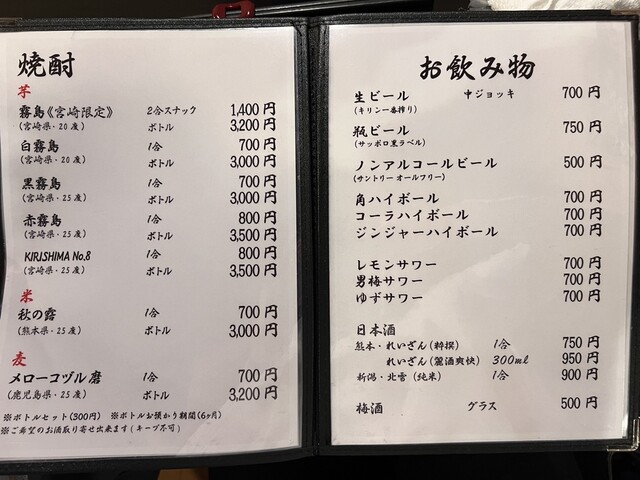 焼酎
芋
霧島《宮崎限定》 2合スナック 1,400 円
(宮崎県・20 度) ボトル 3,200 円
白霧島 1合 700 円
(宮崎県・20 度) ボトル 3,000 円
黒霧島 1合 700 円
(宮崎県・25 度) ボトル 3,000 円
赤霧島 1合 800 円
(宮崎県・25 度) ボトル 3,500 円
KIRISHIMA No.8 1合 800 円
(宮崎県・25 度) ボトル 3,500 円
米
秋の露 1合 700 円
(熊本県・25 度) ボトル 3,000 円
麦
メローコヅル磨 1合 700 円
(鹿児島県・25 度) ボトル 3,200 円
※ボトルセット(300円) ※ボトルお預かり期間(6ヶ月)
※ご希望のお酒取り寄せ出来ます(キープ不可)
お飲み物
生ビール 中ジョッキ 700 円
(キリン一番搾り)
瓶ビール 750 円
(サッポロ黒ラベル)
ノンアルコールビール 500 円
(サントリーオールフリー)
角ハイボール 700 円
コーラハイボール 700 円
ジンジャーハイボール 700 円
レモンサワー 700 円
男梅サワー 700 円
ゆずサワー 700 円
日本酒
熊本・れいざん(特撰) 1合 750 円
れいざん(麗酒爽快) 300ml 950 円
新潟・北雪(純米) 1合 900 円
梅酒 グラス 500 円